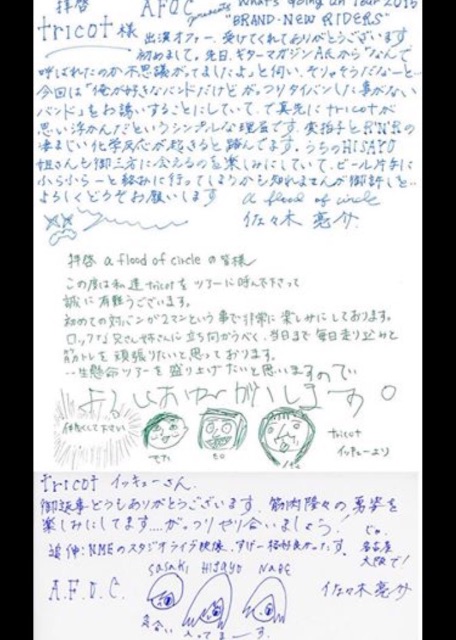 拝啓 AFOC presents What's Going On Tour 2015
tricot様 "BRAND-NEW RIDERS"
出演オファー、受けてくれてありがとうございます
初めまして。先日、ギターマガジンAさんから"なんで
呼ばれたのか不思議がってましたよ"と伺い、そりゃそうだなーと…
今回は「俺が好きなバンドだけどがっつりタイバンした事がない
バンド」をお誘いすることにしていて、で真先にtricotが
思い浮かんだというシンプルな理屈です。変拍子とR'N'Rの
凄まじい化学反応が起きると踏んでます。うちのHISAYO
姐さんも御三方に会えるのを楽しみにしていて、ビール片手に
ふらふらーと絡みに行ってしまうかも知れませんが御許しを…
よろしくどうぞお願いします a flood of circle
佐々木亮介
拝啓 a flood of circle の皆様
この度は私達tricotをツアーに呼んで下さって
誠に有難うございます。
初めての対バンが2マンという事で非常に楽しみにしております。
ロックな兄さん姉さんに立ち向かうべく、当日まで毎日走り込みと
筋トレを頑張りたいと思っております。
一生懸命ツアーを盛り上げたいと思いますのでい
よろしくおねがいします。
仲良くして下さい
tricot
イッキューより
tricot イッキューさん、
御返事どうもありがとうございます。筋肉隆々の勇姿を
楽しみにしてます…がっつりやり合いましょう!
追伸:NMEのスタジオライブ映像、すげー格好良かったす。
じゃ、
名古屋
大阪で!
A.F.O.C.
SASAKI HISAYO NABE
佐々木亮介
気合い入ってまーす。